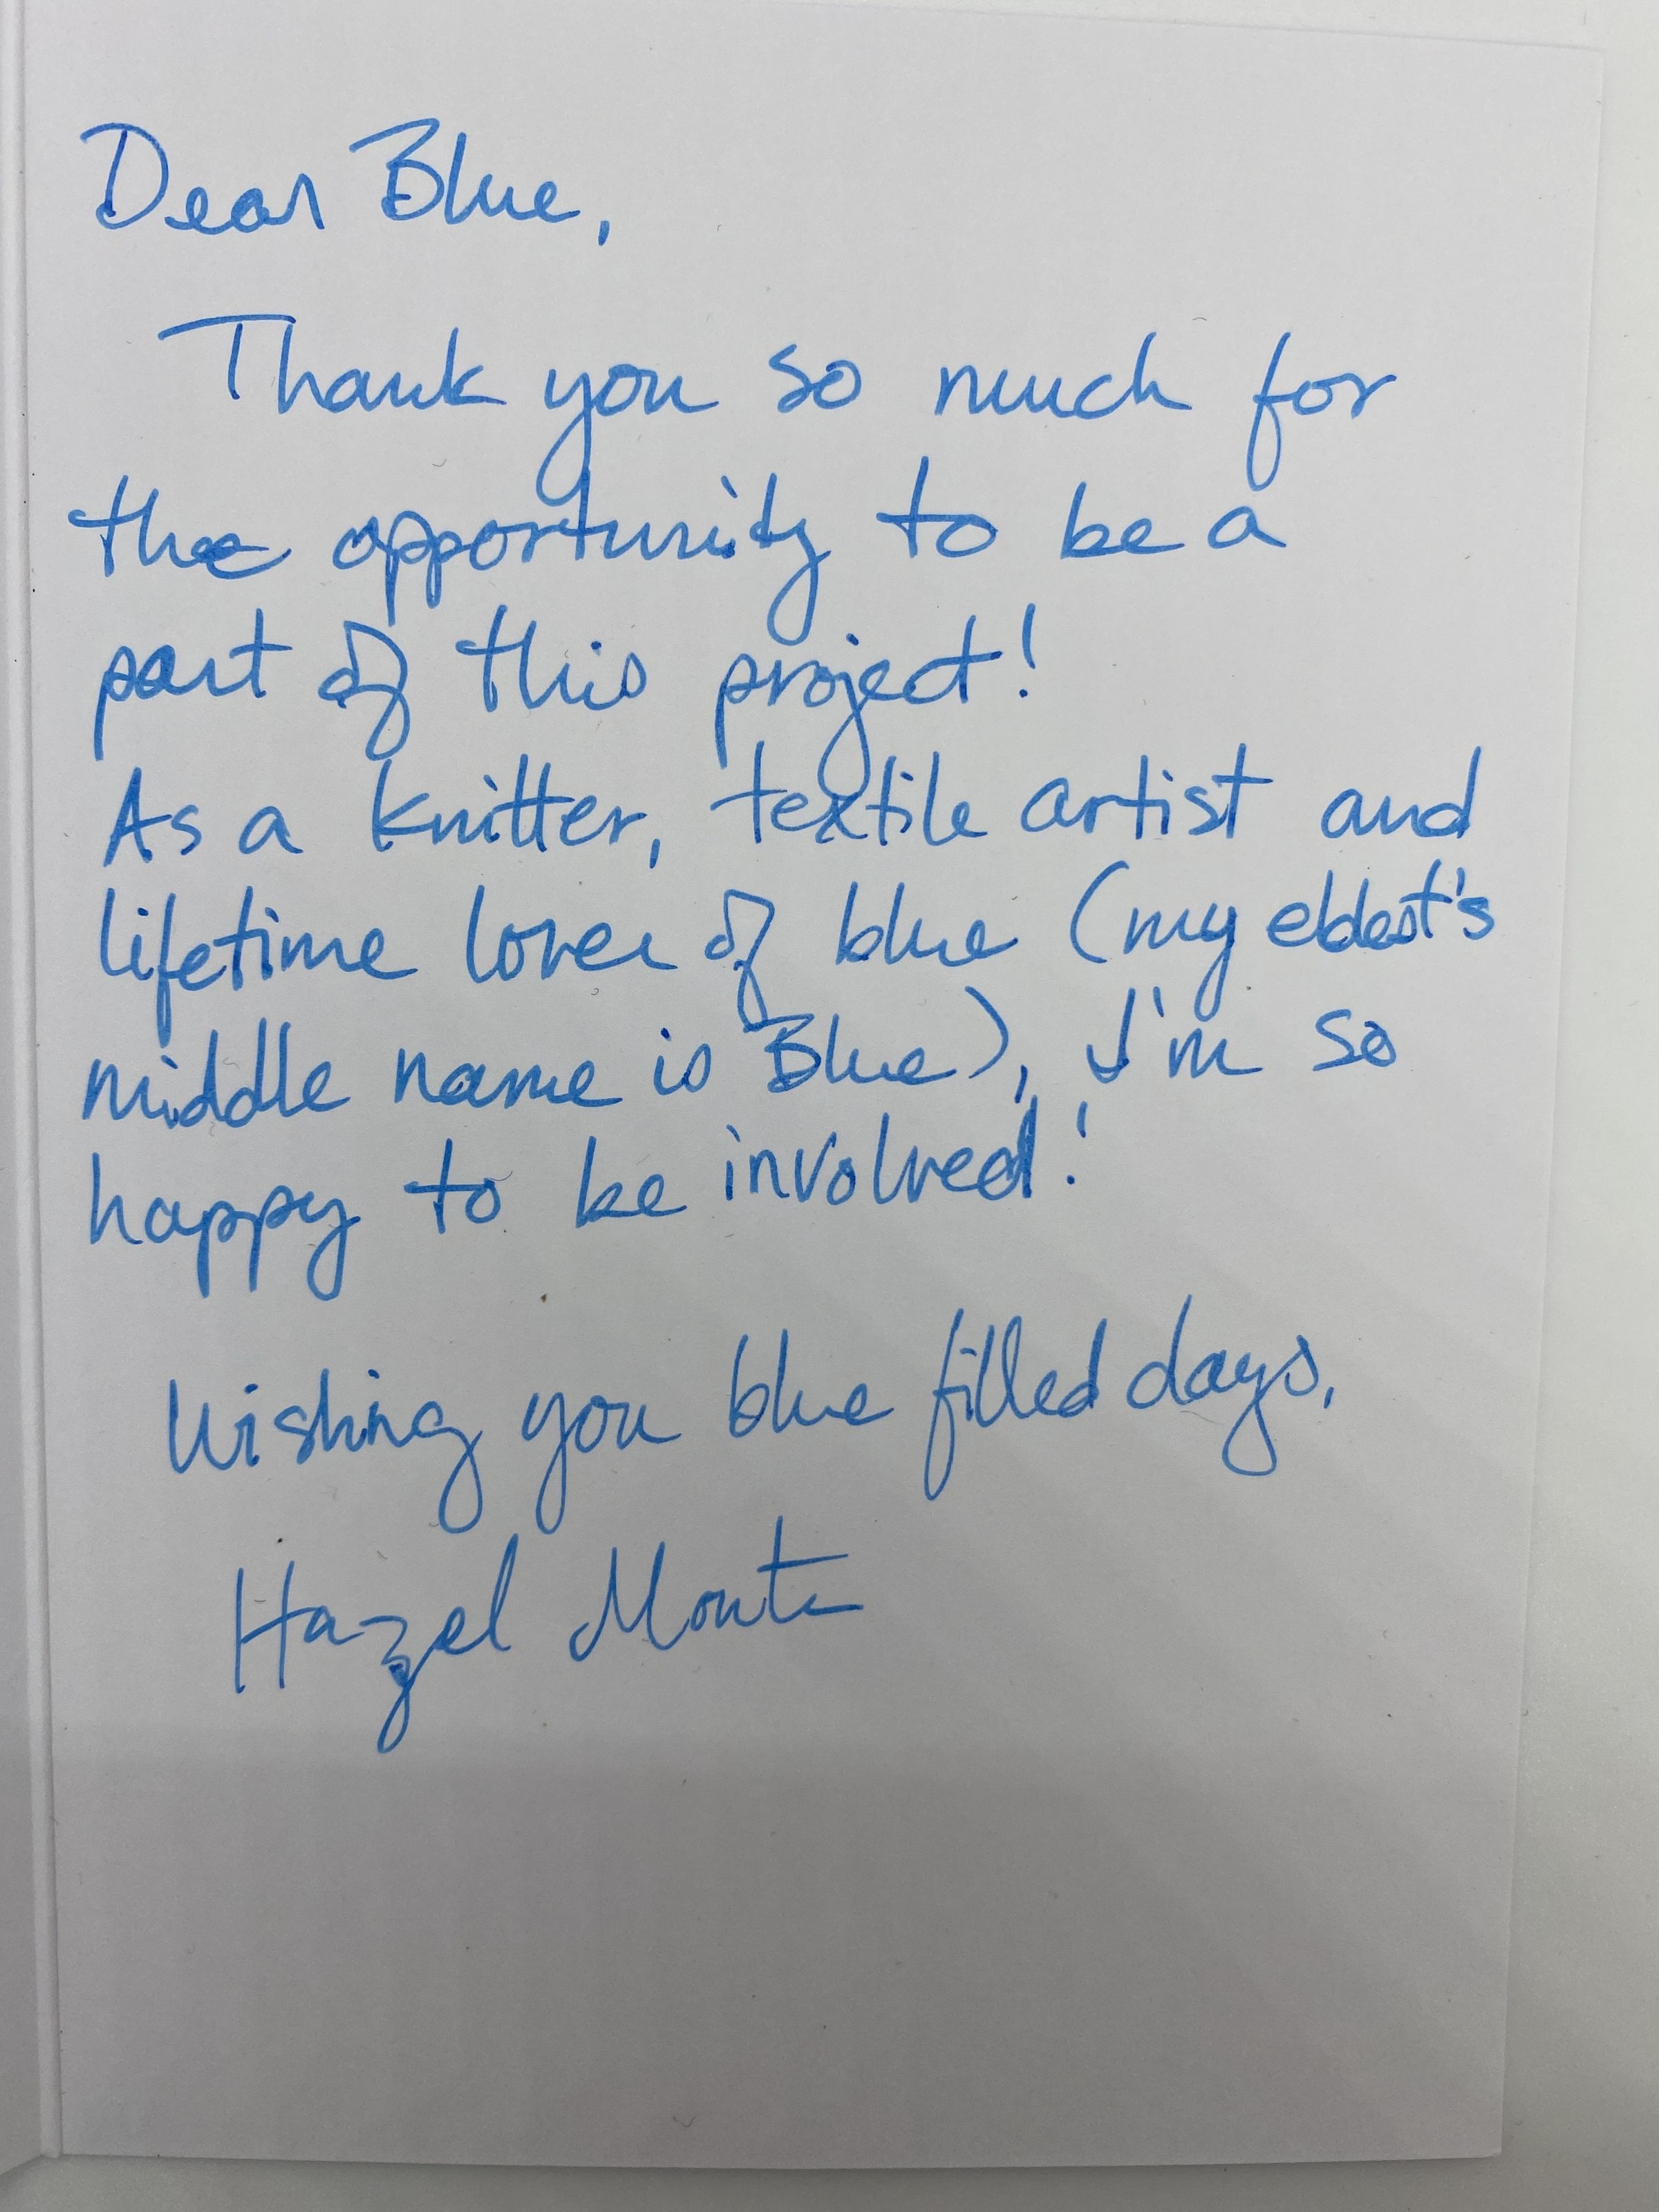 Dear Blue,
Thank you so much for
the opportunity to be a
part of this project!
As a knitter, textile artist and
lifetime lover of blue (my eldest's
middle name is Blue), I'm so
happy to be involved!
Wishing you blue filled days,
Hazel